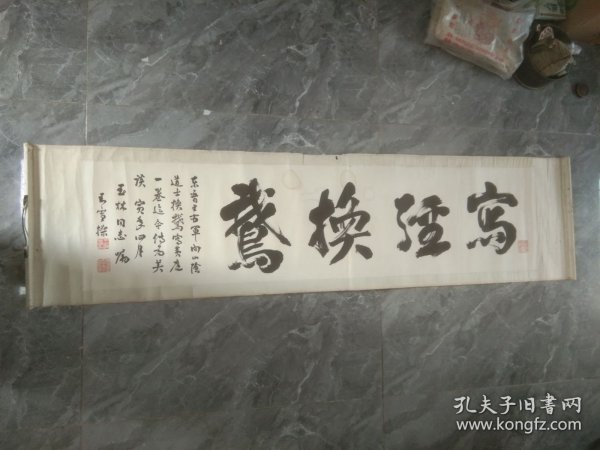 寫經換鵞
東晉王右軍向山陰
道士換鵞寫黃庭
一卷迄今傳為美
談 寅冬四月
玉林同志囑
孔夫子旧书网
www.kongfz.com